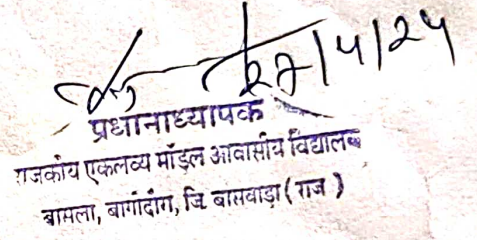 27/4/24
प्रधानाध्यापक
राजकीय एकलव्य मॉडल आवासीय विद्यालय
बामला, बागीदौरा, जि. बासवाड़ा ( राज )